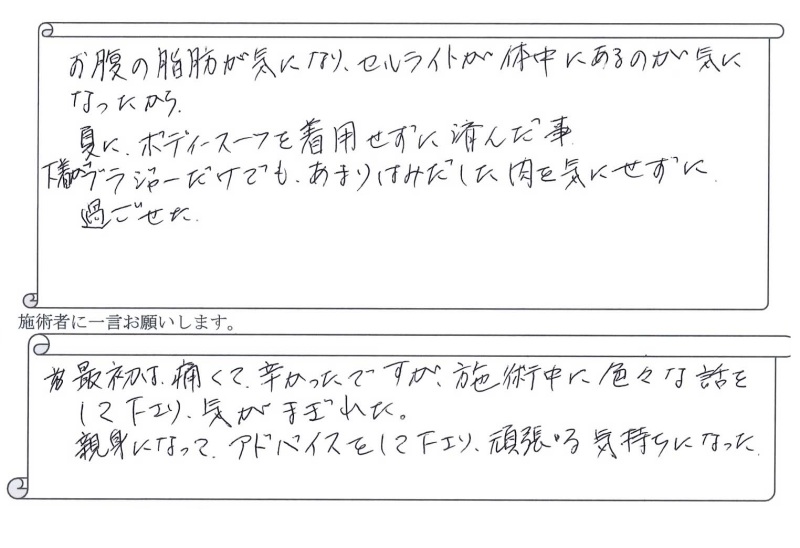 お腹の脂肪が気になり、セルライトが体中にあるのが気に
なったから。
夏に、ボディースーツを着用せずに済んだ事
下着のブラジャーだけでも、あまりはみだした肉を気にせずに
過ごせた。
施術者に一言お願いします。
最初は、痛くて、辛かったですが、施術中に色々な話を
して下エり、気がまぎれた。
親身になって、アドバイスをして下エり、頑張る気持ちになった。